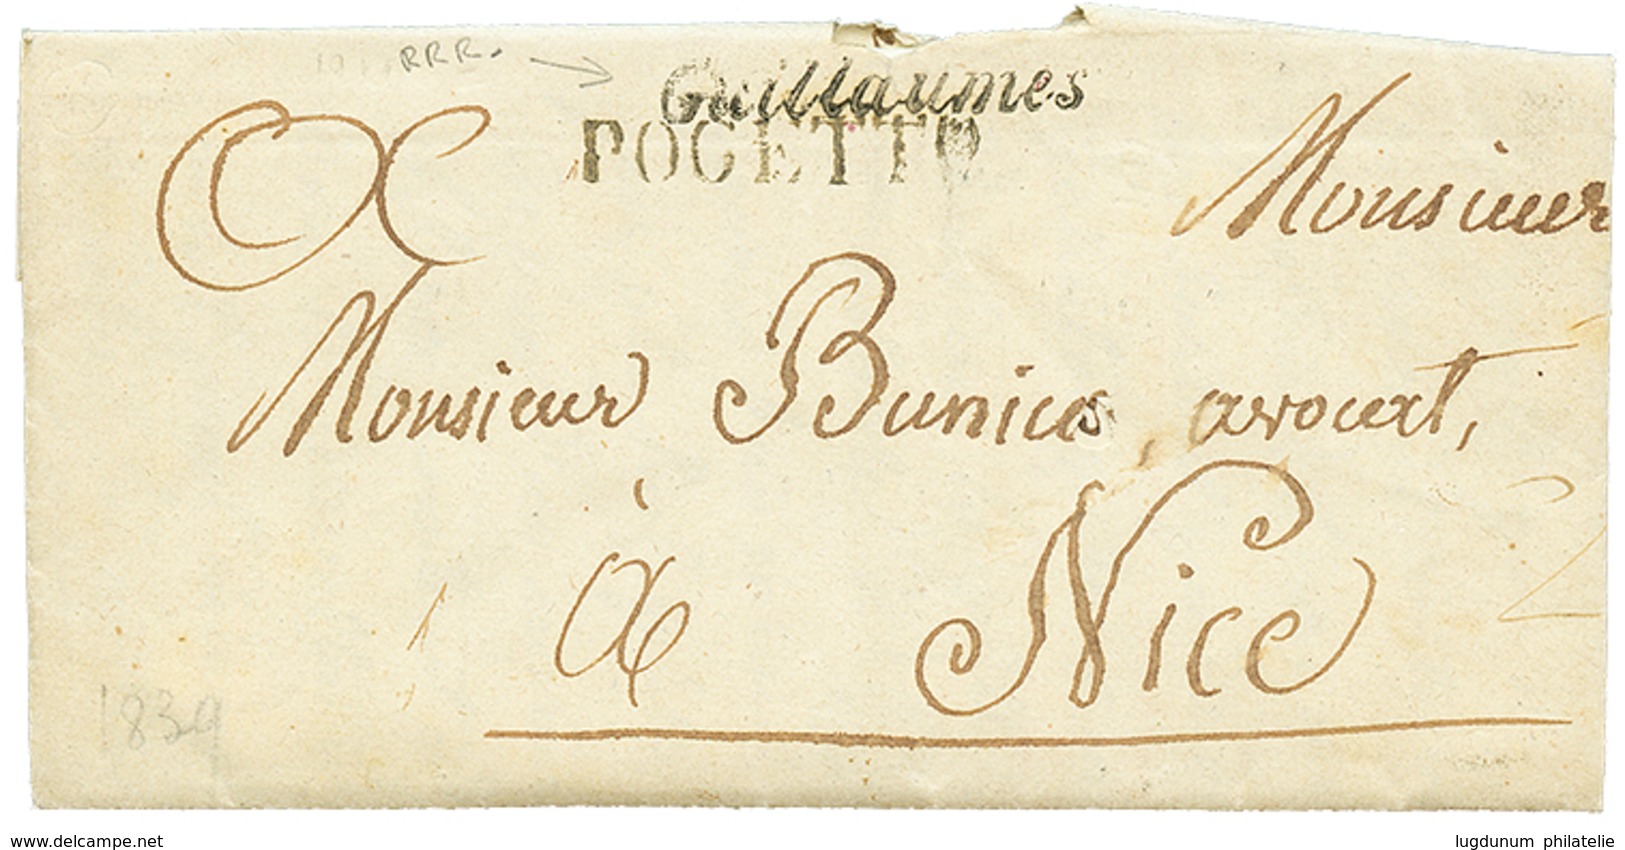 RRR.
Guillaumes
POGETTO
Monsieur
Monsieur Bunico, avocat,
à Nice
1839
www.delcampe.net
lugdunum philatelie